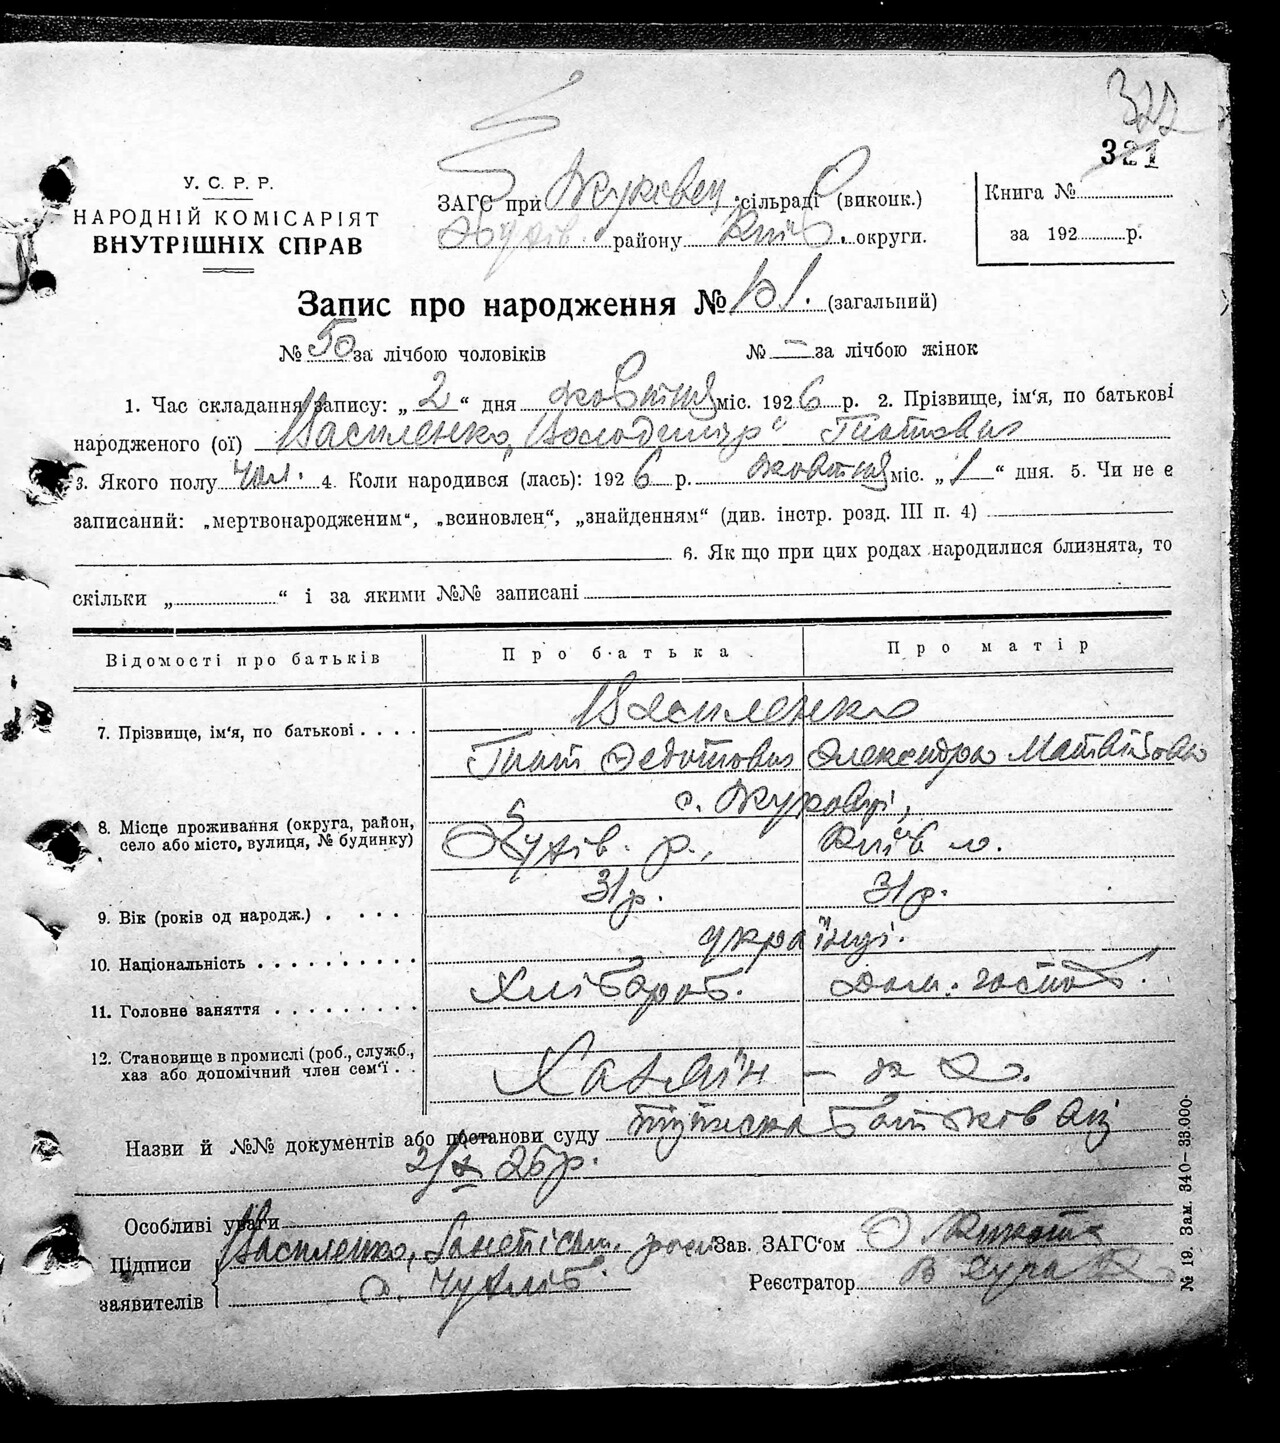 322
321
У. С. Р. Р.
НАРОДНІЙ КОМІСАРІЯТ
ВНУТРІШНІХ СПРАВ
ЗАГС при Жуковец сільраді (виконк.)
району Київ. округи.
Книга №
за 192 р.
Запис про народження № 101. (загальний)
№ 50 за лічбою чоловіків № — за лічбою жінок
1. Час складання запису: „ 2 “ дня жовтня міс. 1926 р. 2. Прізвище, ім‘я, по батькові
народженого (ої) Василенко, Володимір
3. Якого полу чол. 4. Коли народився (лась): 1926 р. жовтня міс. „ 1 “ дня. 5. Чи не є
записаний: „мертвонародженим“, „всиновлен“, „знайденням“ (див. інстр. розд. III п. 4)
6. Як що при цих родах народилися близнята, то
скільки „ “ і за якими №№ записані
Відомості про батьків Про батька Про матір
Василенко
7. Прізвище, ім‘я, по батькові
Федотович Олександра Матвіївна
с. Жуковці,
8. Місце проживання (округа, район,
село або місто, вулиця, № будинку)
р., Київ о.
31 р. 31 р.
9. Вік (років од народж.)
українці.
10. Національність
Хлібороб. Дом. господ.
11. Головне заняття
12. Становище в промислі (роб., служб.,
хаз або допомічний член сем‘ї
Хазяїн —
Назви й №№ документів або постанови суду підписка батьків від
2/X 26 р.
Особливі уваги
Підписи
заявителів
Василенко,
Зав. ЗАГС‘ом
Реєстратор
№ 19. Зам. 340–33.000·